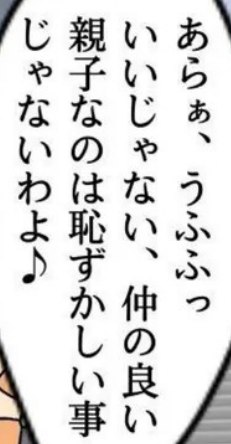 あらぁ、うふふっ
いいじゃない、仲の良い
親子なのは恥ずかしい事
じゃないわよ♪